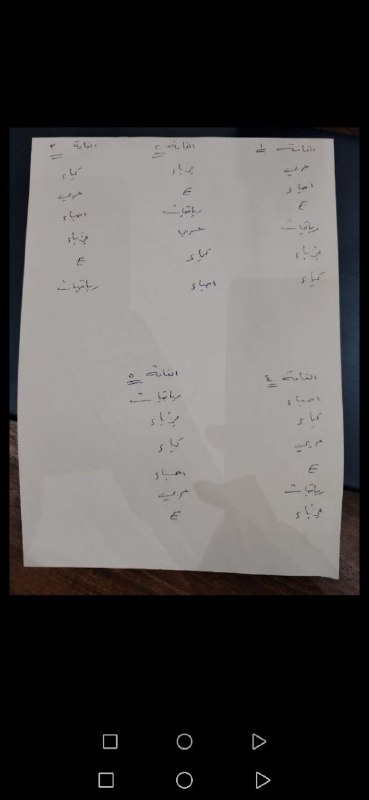 القاعة ١
عربي
احياء
E
رياضيات
فيزياء
كيمياء
القاعة ٢
فيزياء
E
رياضيات
عربي
كيمياء
احياء
القاعة ٣
كيمياء
عربي
احياء
فيزياء
E
رياضيات
القاعة ٤
احياء
كيمياء
عربي
E
رياضيات
فيزياء
القاعة ٥
رياضيات
فيزياء
كيمياء
احياء
عربي
E